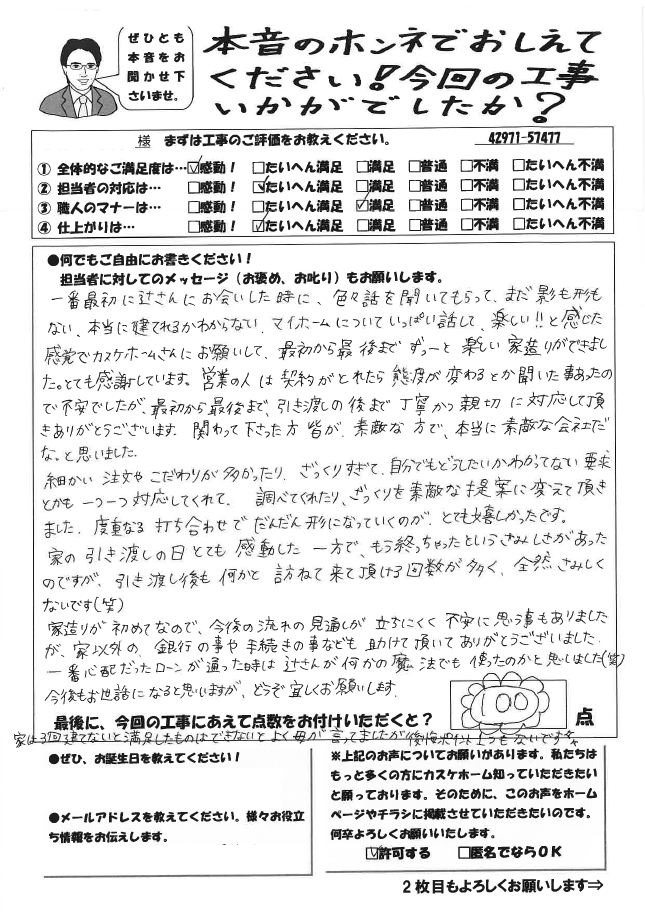 ぜひとも
本音をお
聞かせ下
さいませ。
本音のホンネでおしえて
ください!今回の工事
いかがでしたか?
様 まずは工事のご評価をお教えください。 4Z971-57477
① 全体的なご満足度は…☑感動! □たいへん満足 □満足 □普通 □不満 □たいへん不満
② 担当者の対応は… □感動! ☑たいへん満足 □満足 □普通 □不満 □たいへん不満
③ 職人のマナーは… □感動! □たいへん満足 ☑満足 □普通 □不満 □たいへん不満
④ 仕上がりは… □感動! ☑たいへん満足 □満足 □普通 □不満 □たいへん不満
●何でもご自由にお書きください!
担当者に対してのメッセージ（お褒め、お叱り）もお願いします。
一番最初に辻さんにお会いした時に、色々話を聞いてもらって、まだ影も形も
ない、本当に建てれるかわからない、マイホームについていっぱい話して、楽しい!!と感じた
感覚でカスケホームさんにお願いして、最初から最後までずっーと楽しい家造りができまし
た。とても感謝しています。営業の人は契約がとれたら態度が変わるとか聞いた事あったの
で不安でしたが、最初から最後まで、引き渡しの後まで丁寧かつ親切に対応して頂
きありがとうございます。関わって下さった方皆が、素敵な方で、本当に素敵な会社だ
な。と思いました。
細かい注文やこだわりが多かったり、ざっくりすぎて、自分でもどうしたいかわかってない要求
とかも一つ一つ対応してくれて、調べてくれたり、ざっくりを素敵な提案に変えて頂き
ました。度重なる打ち合わせでだんだん形になっていくのが、とても嬉しかったです。
家の引き渡しの日とても感動した一方で、もう終っちゃったというさみしさがあった
のですが、引き渡し後も何かと訪ねて来て頂ける回数が多く、全然さみしく
ないです(笑)
家造りが初めてなので、今後の流れの見通しが立ちにくく不安に思う事もありました
が、家以外の、銀行の事や手続きの事なども助けて頂いてありがとうございました。
一番心配だったローンが通った時は辻さんが何かの魔法でも使ったのかと思いました(笑)
今後もお世話になると思いますが、どうぞ宜しくお願いします。
最後に、今回の工事にあえて点数をお付けいただくと? 100 点
家は3回建てないと満足したものはできないとよく母が言ってましたが後悔は1つもないです
●ぜひ、お誕生日を教えてください!
●メールアドレスを教えてください。様々お役立
ち情報をお伝えします。
※上記のお声についてお願いがあります。私たちは
もっと多くの方にカスケホーム知っていただきたい
と願っております。そのために、このお声をホーム
ページやチラシに掲載させていただきたいのです。
何卒よろしくお願いいたします。
☑許可する □匿名でならOK
2枚目もよろしくお願いします⇒